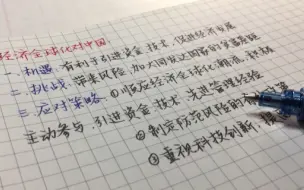 经济全球化对中国
一.机遇:有利于引进资金技术,促进经济发展
二.挑战:带来风险,加大同发达国家的贫富差距
三.应对策略 ①顺应经济全球化潮流,
主动参与,引进资金、技术、先进管理经验
②制定防范风险的
③重视科技创新,